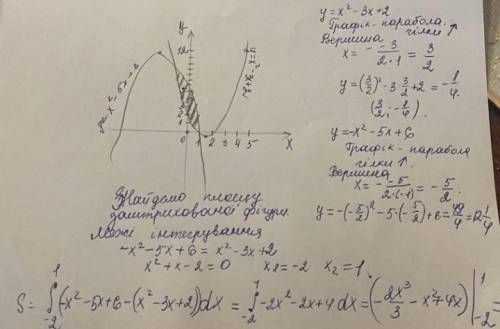 y = x² - 3x + 2
Графік - парабола.
гілки ↑
Вершина
x = - -3/(2·1) = 3/2
y = (3/2)² - 3·3/2 + 2 = -1/4.
(3/2; -1/4).
y = -x² - 5x + 6
Графік - парабола
гілки ↑.
Вершина
x = - -5/(2·(-1)) = -5/2.
y = -(-5/2)² - 5·(-5/2) + 6 = 49/4 =
y
12
1
0 1 2 3 4 5 X
Знайдемо площу
заштрихованої фігури.
Межі інтегрування
-x² - 5x + 6 = x² - 3x + 2
x² + x - 2 = 0 x₂ = -2 x₂ = 1.
S = ∫₋₂¹ (-x² - 5x + 6 - (x² - 3x + 2))dx = ∫₋₂¹ -2x² - 2x + 4 dx = (-2x³/3 - x² + 4x) |₋₂¹ =